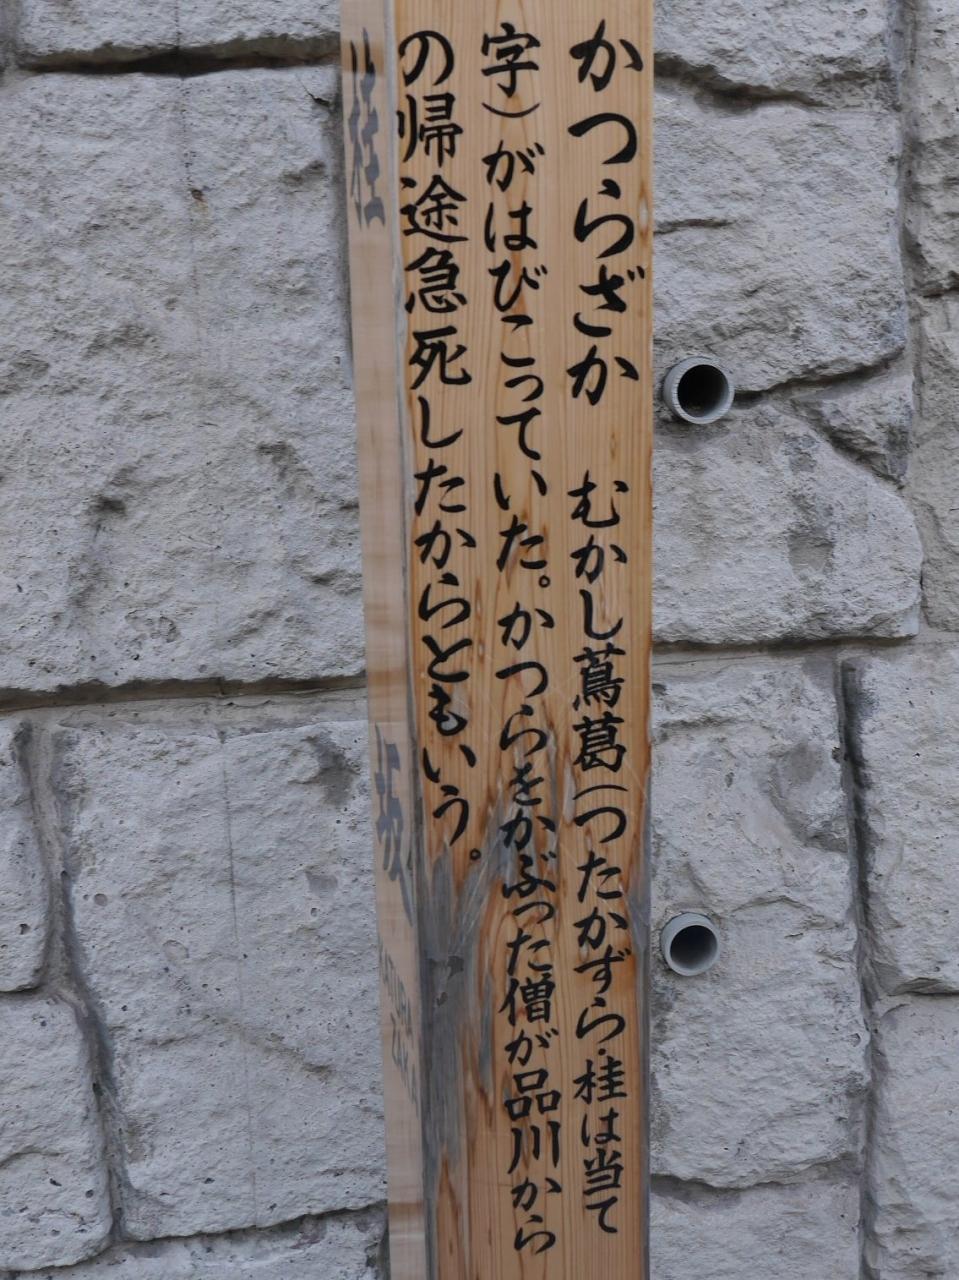 かつらざか　むかし蔦葛（つたかずら・桂は当て
字）がはびこっていた。かつらをかぶった僧が品川から
の帰途急死したからともいう。
桂
坂